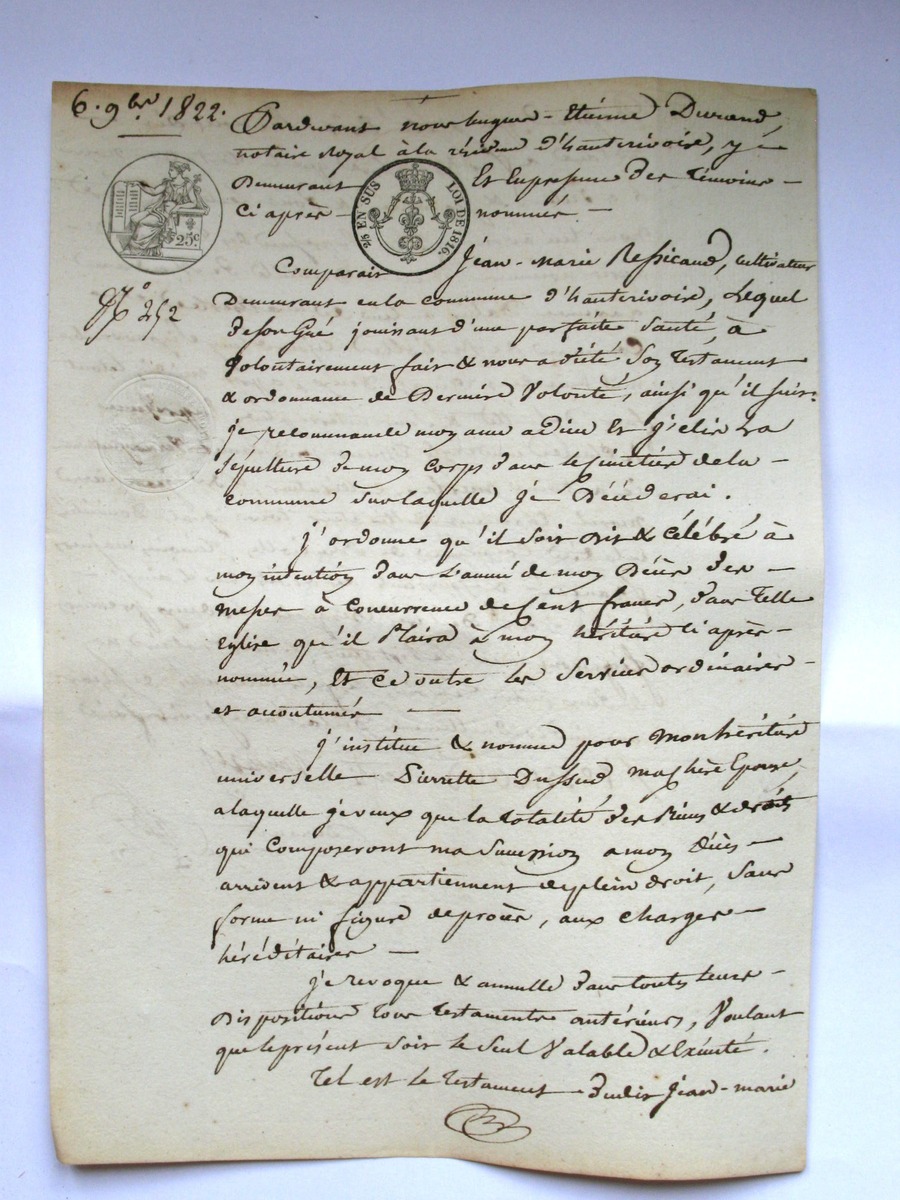 6. 9bre 1822.
Pardevant nous hugues-Etienne Durand,
notaire Royal à la résidence d'hauterivoire, y
Demeurant Et En présence des témoins
ci après nommés.
25c
2/5 EN SUS LOI DE 1816.
Comparait Jean-marie Ressicaud, cultivateur
N° 252
Demeurant en la commune d'hauterivoire, Lequel
de son Gré jouissant d'une parfaite santé, à
Volontairement fait & nous a dicté son testament
& ordonnance de Dernière Volonté, ainsi qu'il suit.
je recommande mon ame a dieu Et j'elis La
sépulture de mon corps dans le Cimetière de la
commune sur laquelle je Décèderai.
j'ordonne qu'il soit Dit & célébré à
mon intention dans L'année de mon Décès des
messes à concurrence de Cent francs, dans telle
Eglise qu'il Plaira à mon héritière ci après
nommée, Et ce outre les Services ordinaires
et acoutumés
j'institue & nomme pour mon héritière
universelle Pierrette Dussud ma chère Epouse,
a laquelle je veux que la totalité des biens & droits
qui Composeront ma Succession a mon Décès
arrident & appartiennent de plein droit, sans
forme ni figure de procès, aux charges
héréditaires
je revoque & annulle dans toutes leurs
Dispositions tous testaments antérieurs, Voulant
que le présent soit le seul Valable & Exécuté.
Tel est le testament dudit Jean-marie